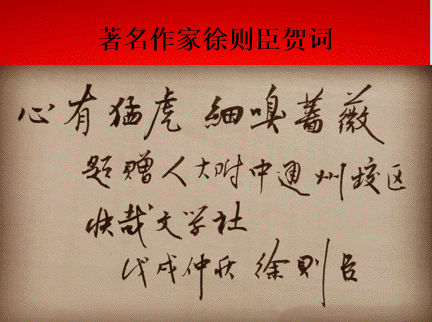 著名作家徐则臣贺词
心有猛虎 細嗅薔薇
题赠人大附中通州校区
快哉文学社
戊戌仲秋 徐则臣